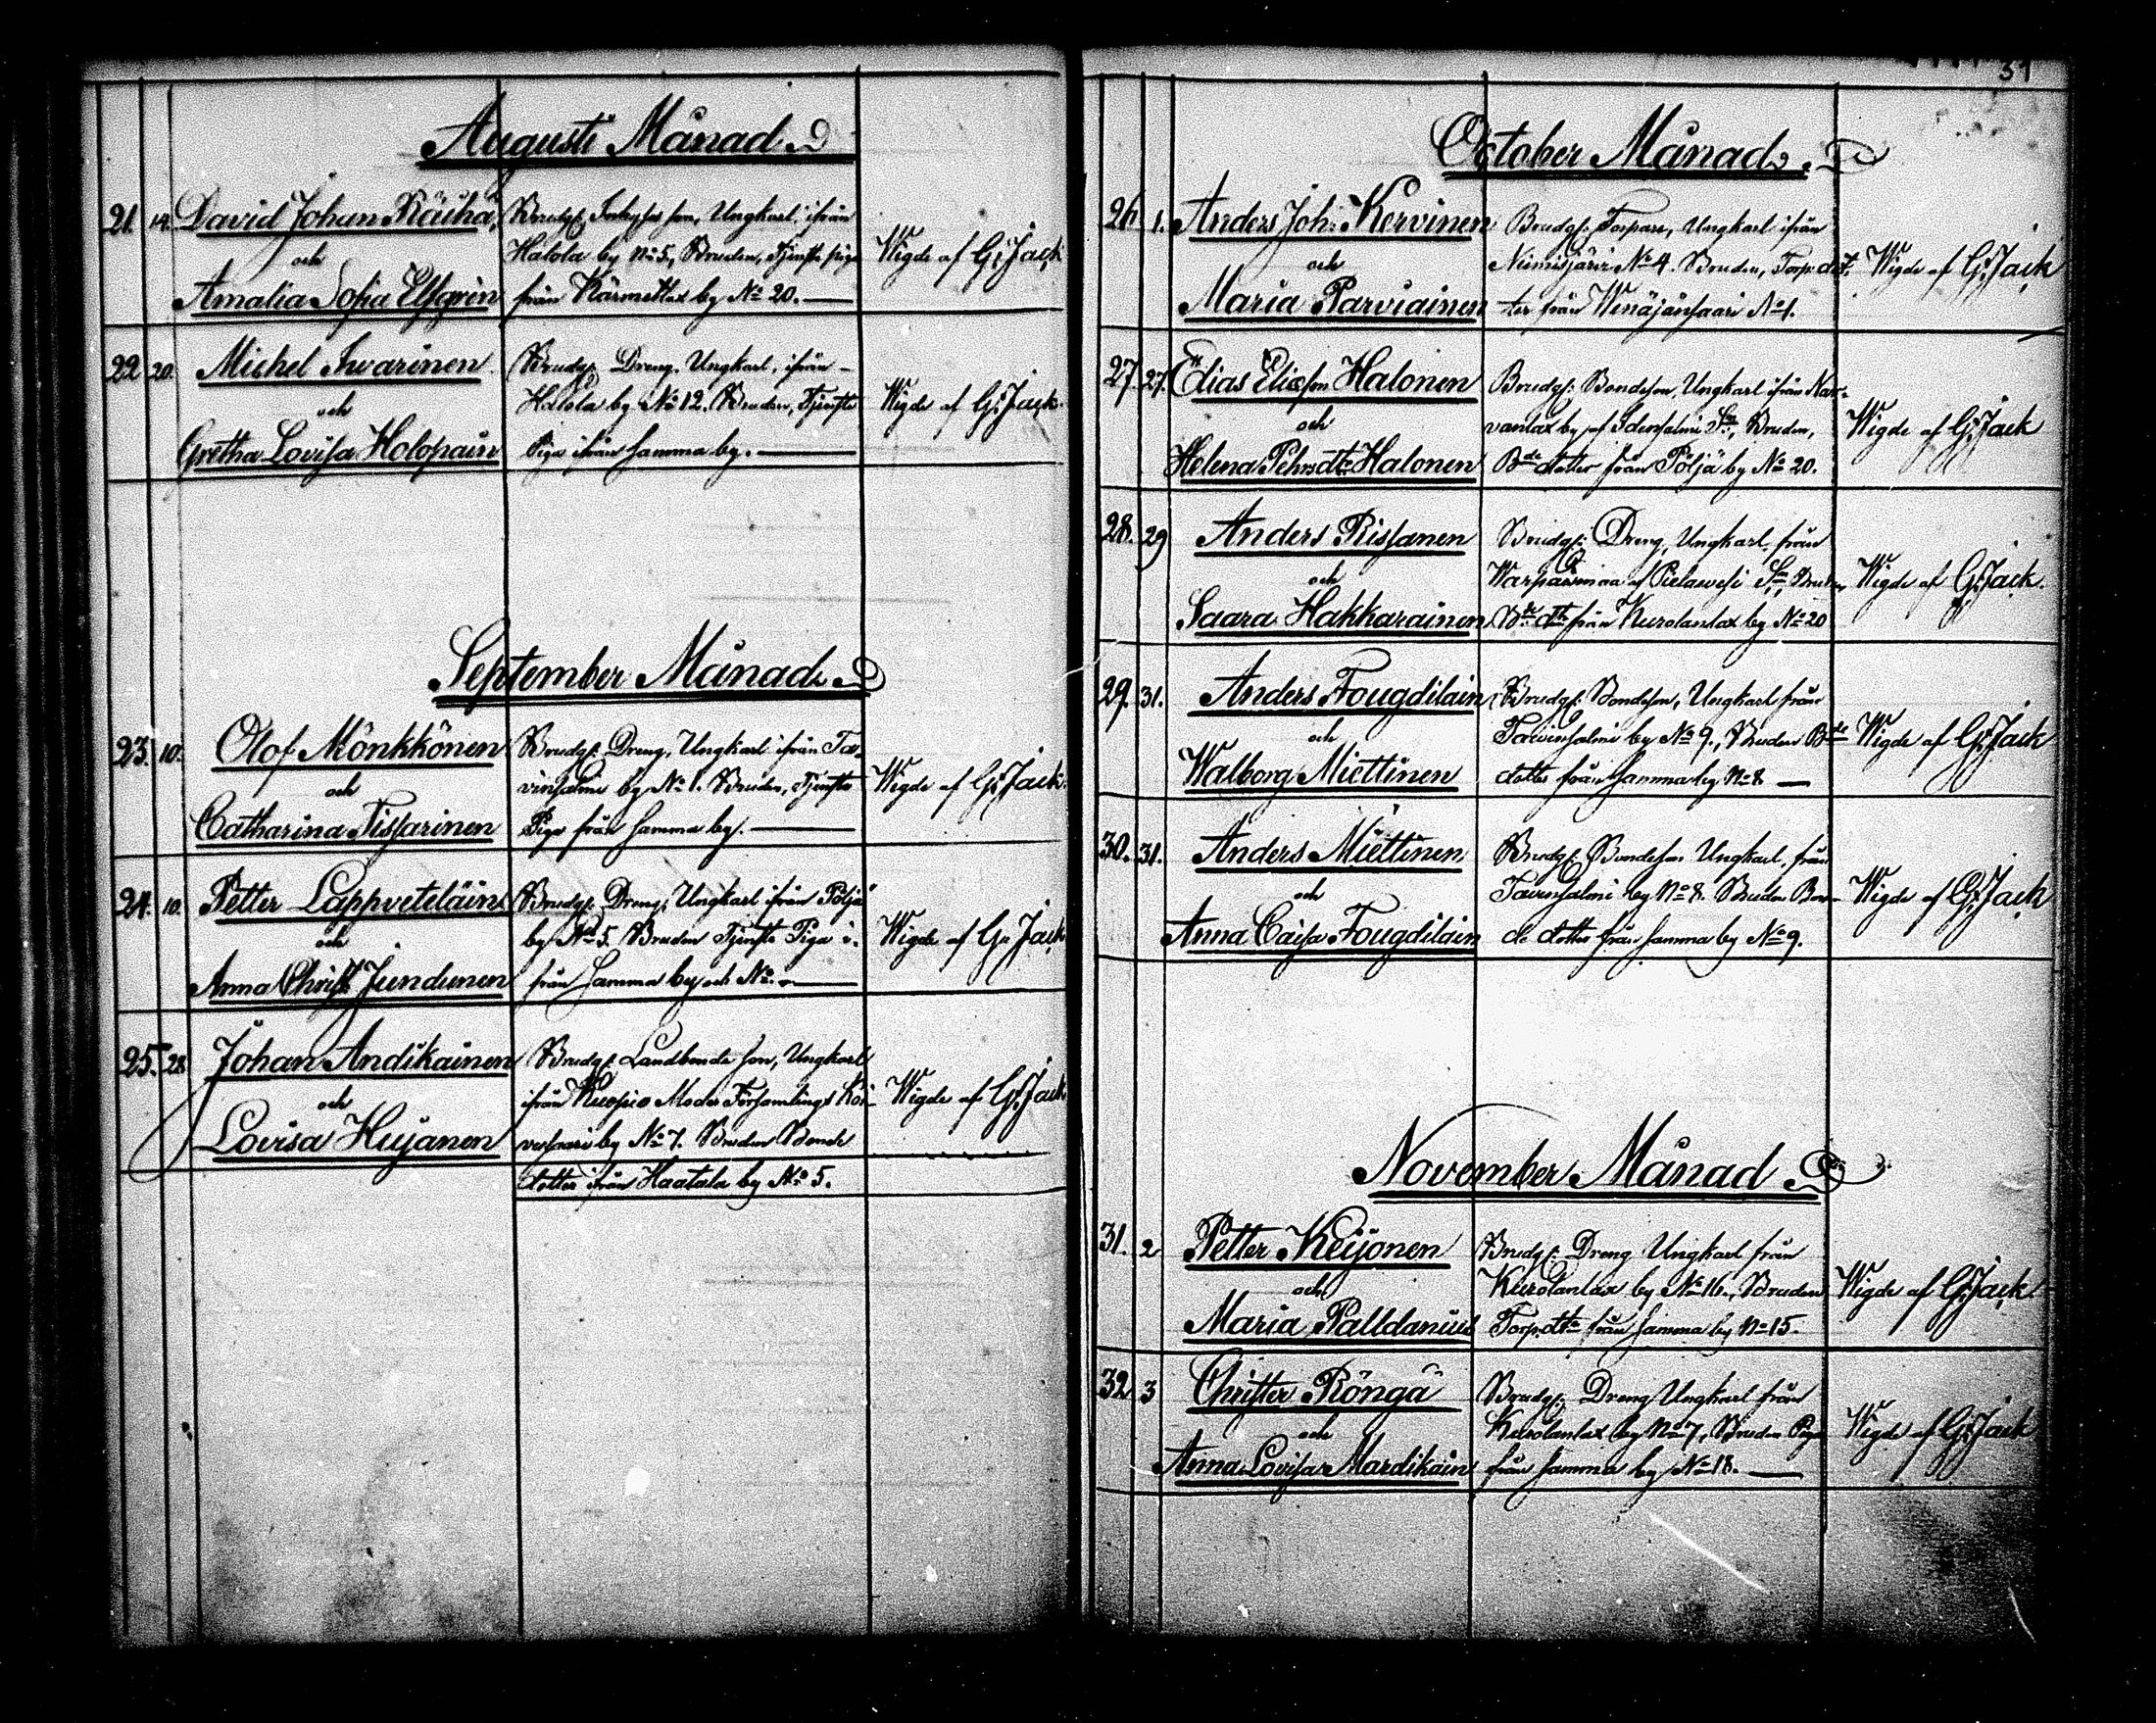 Augusti Månad
21. 14. David Johan Räihä, Brudg: son, Ungkarl, ifrån
och Halola by No 5, Bruden, Tjenste piga Wigde af G. Jack
Amalia Sofia Elfgrén från Kärmetlax by No 20.
22 20. Michel Iwarinen Brudg: Dreng, Ungkarl, ifrån
och Halola by No 12. Bruden, Tjenste Wigde af G. Jack.
Gretha Lovisa Holopain Piga ifrån samma by.
September Månad
23. 10. Olof Mönkkönen Brudg: Dreng, Ungkarl ifrån Ta-
och vinsalmi by No 1. Bruden, Tjenste Wigde af G. Jack.
Catharina Tissarinen Piga från samma by.
24. 10. Petter Lappveteläin Brudg: Dreng, Ungkarl ifrån Pöljä
och by No 5. Bruden Tjenste Piga i- Wigde af G. Jack
Anna Christ. Jundunen från samma by och No.
25. 28 Johan Andikainen Brudg: Landbonde son, Ungkarl
och ifrån Kuopio Moder Församlings Wigde af G. Jack
Lovisa Hujanen by No 7. Bruden Bonde
dotter ifrån Haatala by No 5.
31
October Månad.
26 1. Anders Joh: Kervinen Brudg: Torpare, Ungkarl ifrån
och Niemisjärvi No 4. Bruden, Torp: dot- Wigde af G. Jack
Maria Parviainen ter från Wenäjänsaari No 1.
27. 27. Elias Eliasson Halonen Brudg: Bondeson, Ungkarl ifrån Nar-
och vanlax by af Idensalmi Sn, Bruden, Wigde af G. Jack
Helena Pehrsdtr Halonen Bde dotter från Pöljä by No 20.
28. 29 Anders Rissanen Brudg: Dreng, Ungkarl, från
och af Pielawesi Sn, Bruden, Wigde af G. Jack.
Saara Hakkarainen Bde dtr från Kurolanlax by No 20
29. 31. Anders Fougdilain Brudg: Bondeson, Ungkarl från
och Tavinsalmi by No 9., Bruden Bde Wigde af G. Jack
Walborg Miettinen dotter från samma by No 8.
30. 31. Anders Miettinen Brudg: Bondeson Ungkarl, från
och Tavinsalmi by No 8. Bruden Bon- Wigde af G. Jack
Anna Caisa Fougdilain de dotter från samma by No 9.
November Månad
31. 2 Petter Keijonen Brudg: Dreng Ungkarl från
och Kurolanlax by No 16., Bruden Wigde af G. Jack
Maria Palldanius Torp. dtr från samma by No 15.
32 3 Christer Röngä Brudg: Dreng Ungkarl från
och Kurolanlax by No 7, Bruden Piga Wigde af G. Jack
Anna Lovisa Mardikain från samma by No 18.